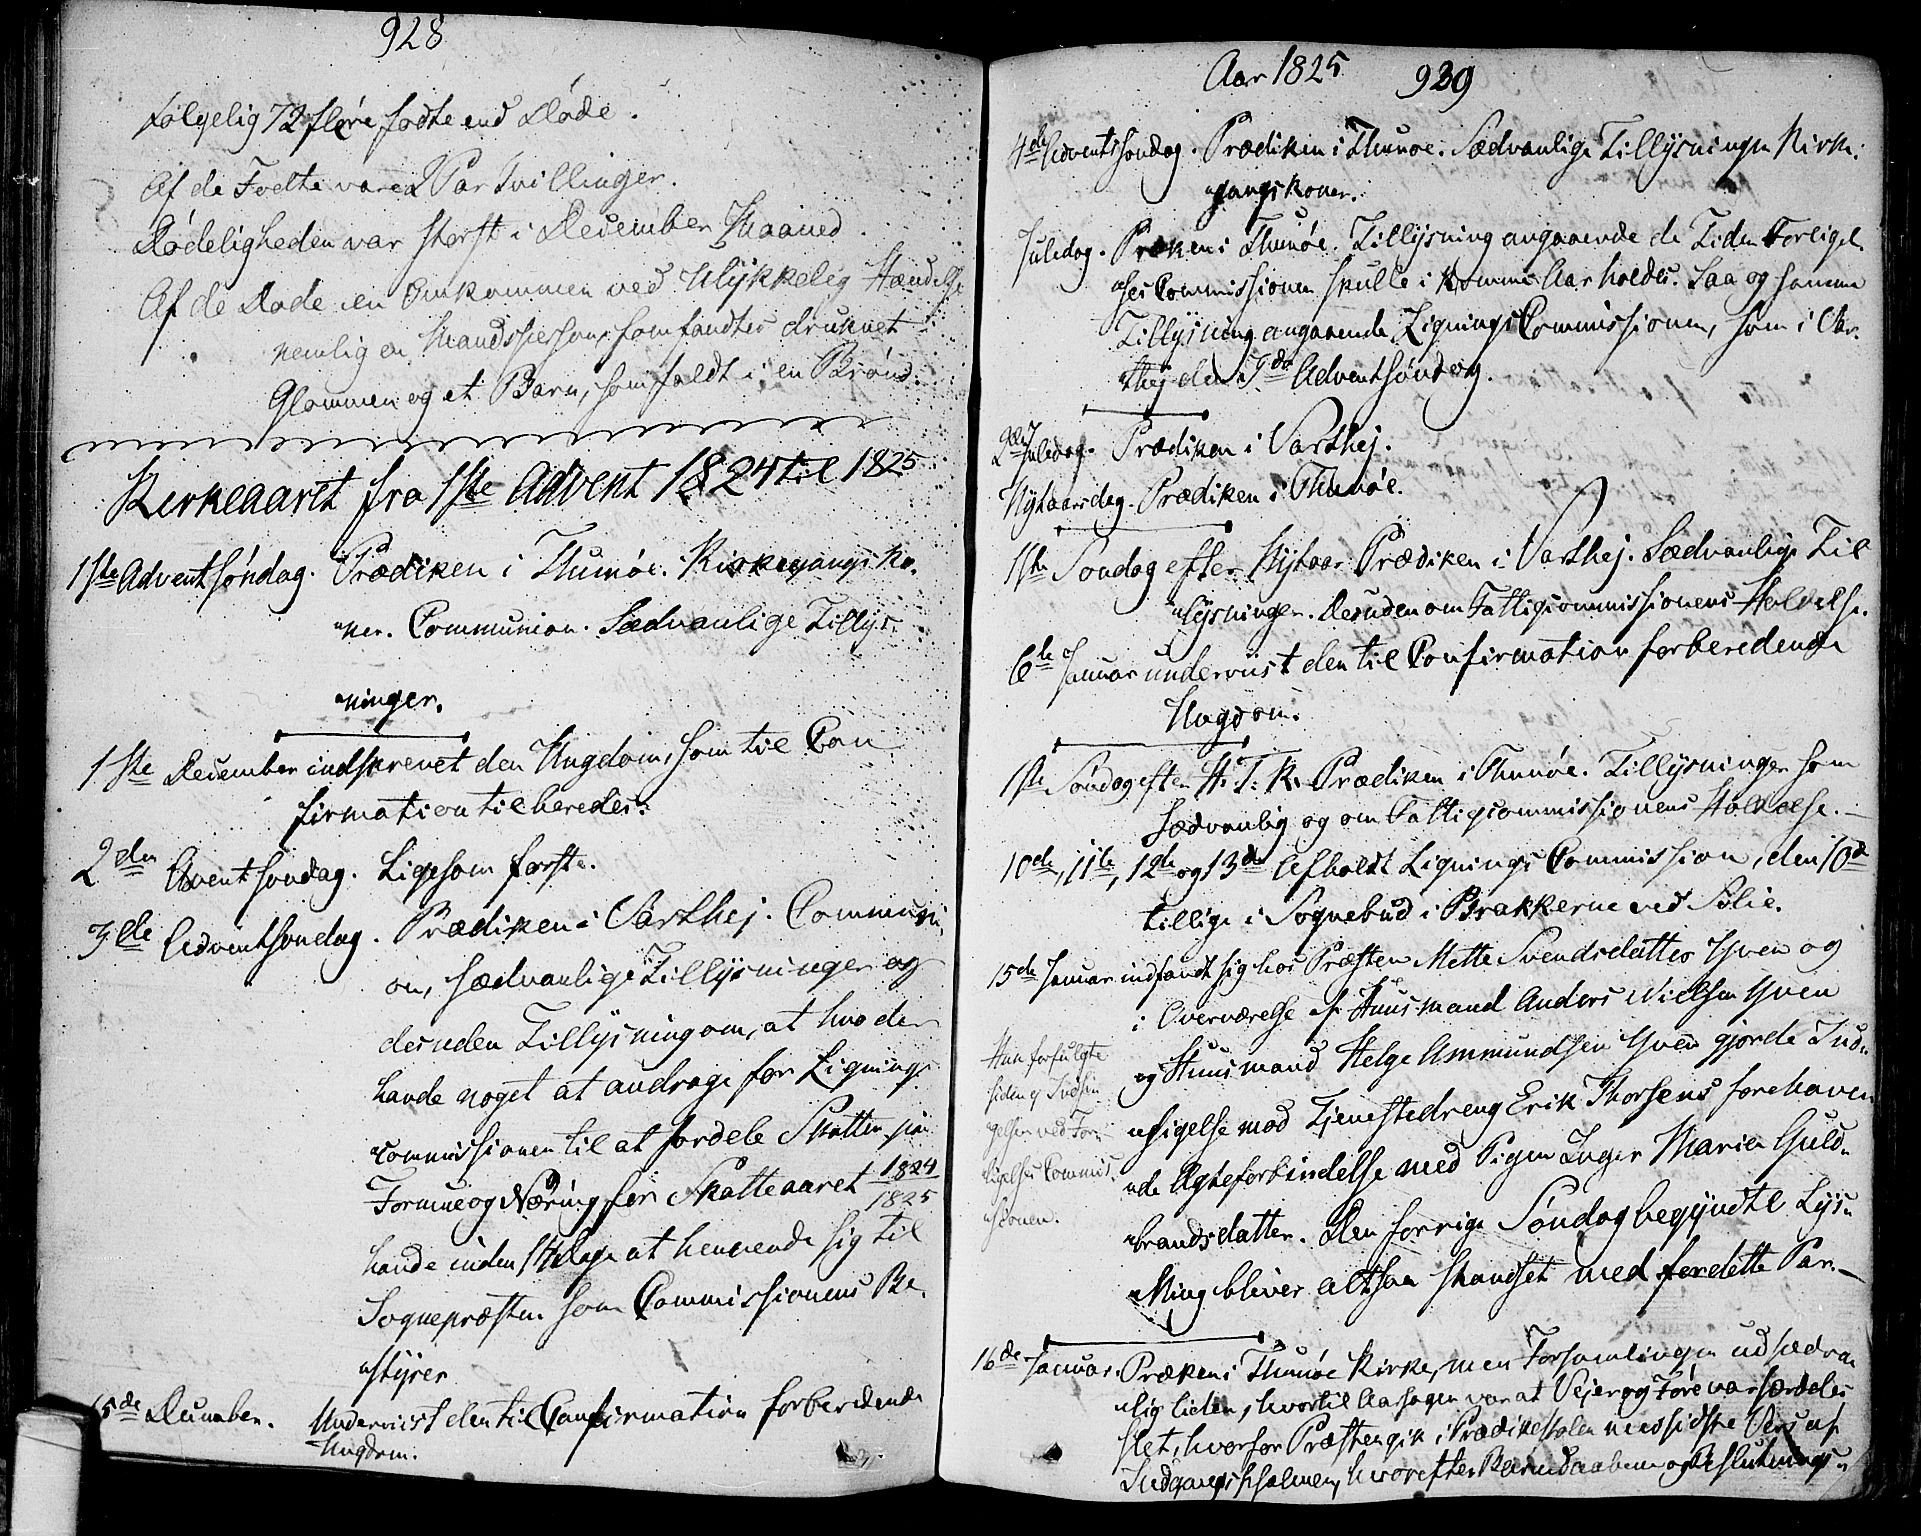 928
Følgelig 72 flere fødte end Døde.
Af de Fødte vare 2 Par Tvillinger.
Dødeligheden var størst i December Maaned.
Af de Døde een Omkommen ved Ulykkelig Hændelse
nemlig en Mandsperson, som fandtes druknet i
Glommen og et Barn, som faldt i en Brønd.
Kirkeaaret fra 1ste Advent 1824 til 1825
1ste Advent søndag. Prædiken i Thunøe. Kirkegangs Ko-
ner. Communion. Sædvanlige Tillys-
ninger.
1ste December indskrevet den Ungdom, som til Con
firmation tilberedes.
2den Advent søndag. Ligesom første.
3de Adventsøndag. Prædiken i Varthej. Communi-
on, sædvanlige Tillysninger og
desuden Tillysning om, at hvo der
havde noget at andrage for Lignings
commissionen til at fordele Skatten paa
Formue og Næring for Skatteaaret 1824
1825
havde inden 14 Dage at henvende sig til
Sognepræsten som Commissionens Be-
styrer
15de December. Underviist den til Confirmation forberedende
Ungdom.
Aar 1825 929
4de Advents søndag. Prædiken i Thunøe. Sædvanlige Tillysninger Kirke-
gangskoner.
Juledag. Præken i Thunøe. Tillysning angaaende de Tider Forligel-
ses Commissionen skulle i komme Aar holdes. Saa og samme
Tillysning angaaende Lignings Commissionen, som i Var-
thej den 3de Adventsøndag.
2den Juledag. Prædiken i Varthej.
Nytaarsdag. Prædiken i Thunøe.
1ste Søndag efter Nytaar Prædiken i Varthej. Sædvanlige Til
lysninger. Desuden om Fattigcommissionens Holdelse.
6te Januar underviist den til Confirmation forberedende
Ungdom.
1ste Søndag efter H. T. K. Prædiken i Thunøe. Tillysninger som
sædvanlig og om Fattigcommissionens Holdelse.
10de, 11te, 12de og 13de Afholdt Lignings Commission, den 10de
tillige i Sognebud i Brakkerne ved Solie.
15de Januar indfandt sig hos Præsten Mette Svendsdatter Hven og
i Overværelse af Huusmand Anders Nielsen Hven
og Huusmand Helge Ammundsen Hven gjorde Ind-
sigelse mod Tjenestedreng Erik Thorsens forehaven
de Ægteforbindelse med Pigen Inger Maria Guld-
brandsdatter. Den forrige Søndag begyndte Lys-
ning bliver altsaa standset med for dette Par.
Hun forfulgte
siden ej Indsi
gelsen ved For-
ligelses Commis-
sionen.
16de Januar. Præken i Thunøe Kirke, men Forsamlingen usædvan
lig liden, hvortil Aarsagen var at Vejer og Føre var særdeles
slet, hvorfor Præsten gik i Prædikestolen med sidste Vers af
Indgangspsalmen, hvorefter Barnedaaben og Beslutnings-